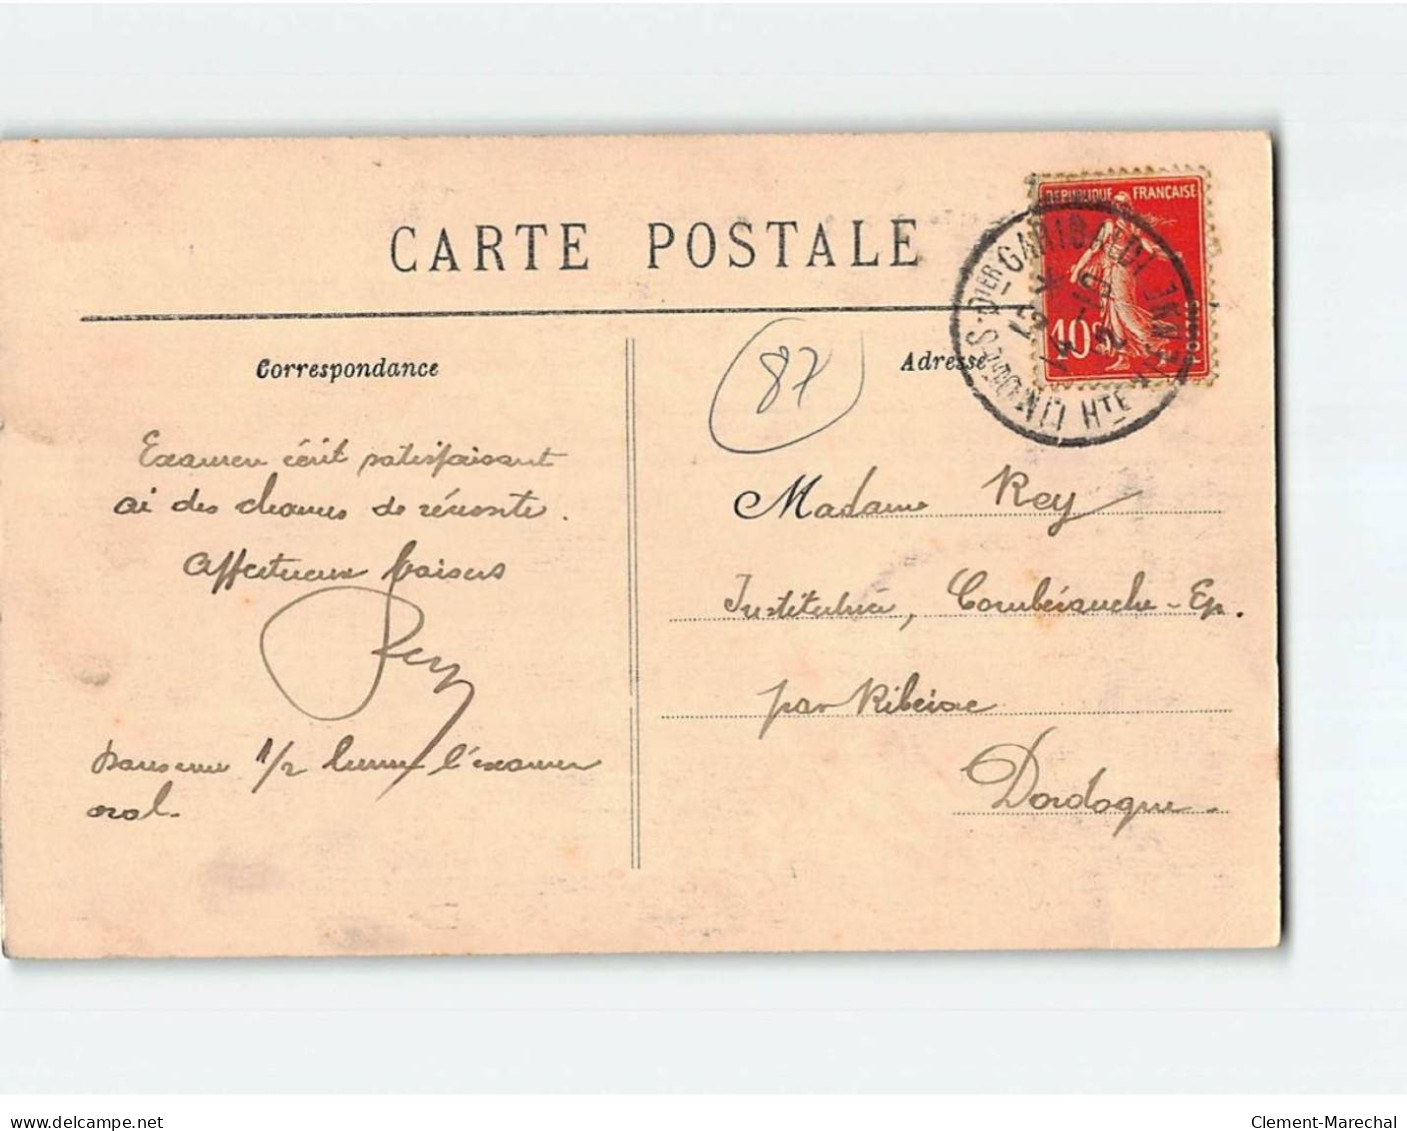 CARTE POSTALE
Correspondance
Adresse
87
RÉPUBLIQUE FRANÇAISE
10c
POSTES
LIMOGES-QIER GARIBALDI
HTE VIENNE
Examen écrit satisfaisant
ai des chances de réussite.
Affectueux baisers
Rey
1/2 heure l'examen
oral.
Madame Rey
Institutrice, Combéranche-Ep.
par Ribérac
Dordogne.
www.delcampe.net
Clement-Marechal